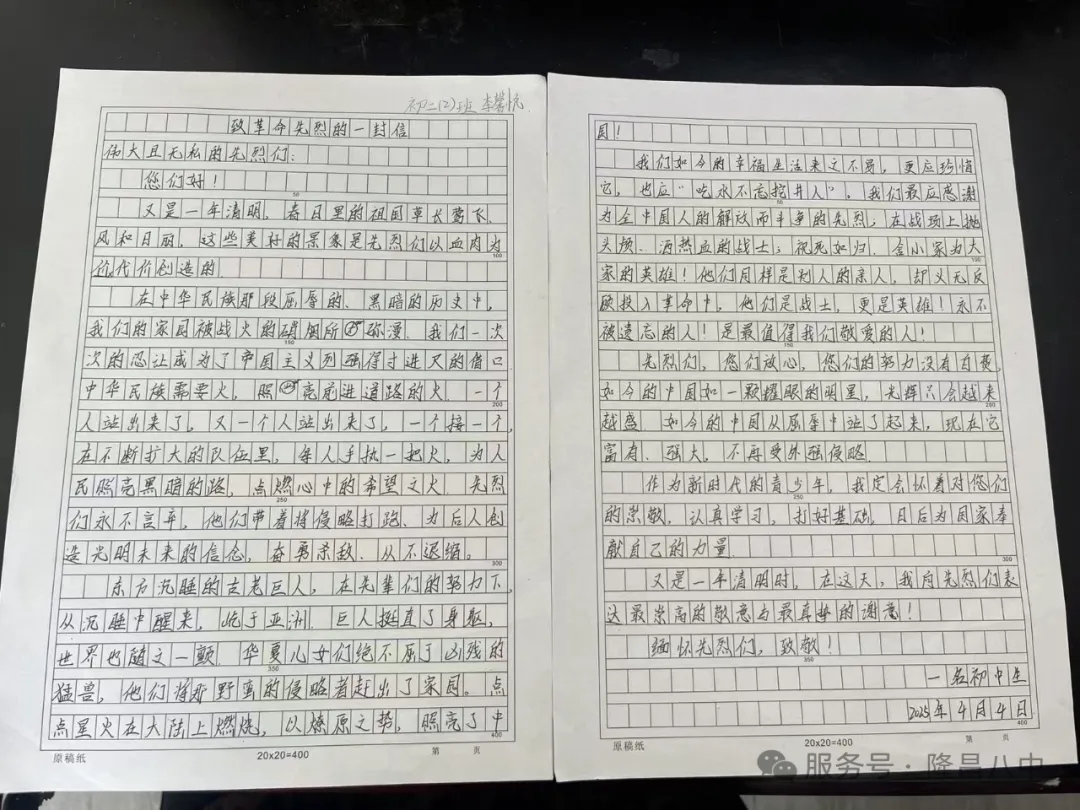 初二(2)班 李馨悦
致革命先烈的一封信
伟大且无私的先烈们:
您们好!
又是一年清明,春日里的祖国草长莺飞,
风和日丽,这些美好的景象是先烈们以血肉为
50
100
价代价创造的.
在中华民族那段屈辱的、黑暗的历史中,
我们的家园被战火的硝烟所弥漫.我们一次
150
次的忍让成为了帝国主义列强得寸进尺的借口.
中华民族需要火,照亮前进道路的火.一个
200
人站出来了,又一个人站出来了,一个接一个,
在不断扩大的队伍里,每人手执一把火,为人
民照亮黑暗的路,点燃心中的希望之火.先烈
250
们永不言弃,他们带着将侵略打跑、为后人创
造光明未来的信念,奋勇杀敌、从不退缩。
300
东方沉睡的古老巨人,在先辈们的努力下,
从沉睡中醒来,屹于亚洲.巨人挺直了身躯,
世界也随之一颤.华夏儿女们绝不屈于凶残的
350
猛兽,他们将那野蛮的侵略者赶出了家园。点
点星火在大陆上燃烧,以燎原之势,照亮了中
400
原稿纸 20x20=400 第 页
国!
我们如今的幸福生活来之不易,更应珍惜
它,也应“吃水不忘挖井人”。我们最应感谢
50
为全中国人的解放而斗争的先烈;在战场上抛
头颅、洒热血的战士;视死如归、舍小家为大
100
家的英雄!他们同样是别人的亲人,却义无反
顾投入革命中,他们是战士,更是英雄!永不
被遗忘的人!是最值得我们敬爱的人!
150
先烈们,您们放心,您们的努力没有白费,
如今的中国如一颗耀眼的明星,光辉只会越来
200
越盛.如今的中国从屈辱中站了起来,现在它
富有、强大,不再受外强侵略.
作为新时代的青少年,我定会怀着对您们
250
的崇敬,认真学习,打好基础,日后为国家奉
献自己的力量.
300
又是一年清明时,在这天,我向先烈们表
达最崇高的敬意与最真挚的谢意!
缅怀先烈们,致敬!
350
一名初中生
2025年4月4日
400
原稿纸 20x20=400 第 页
服务号·隆昌八中